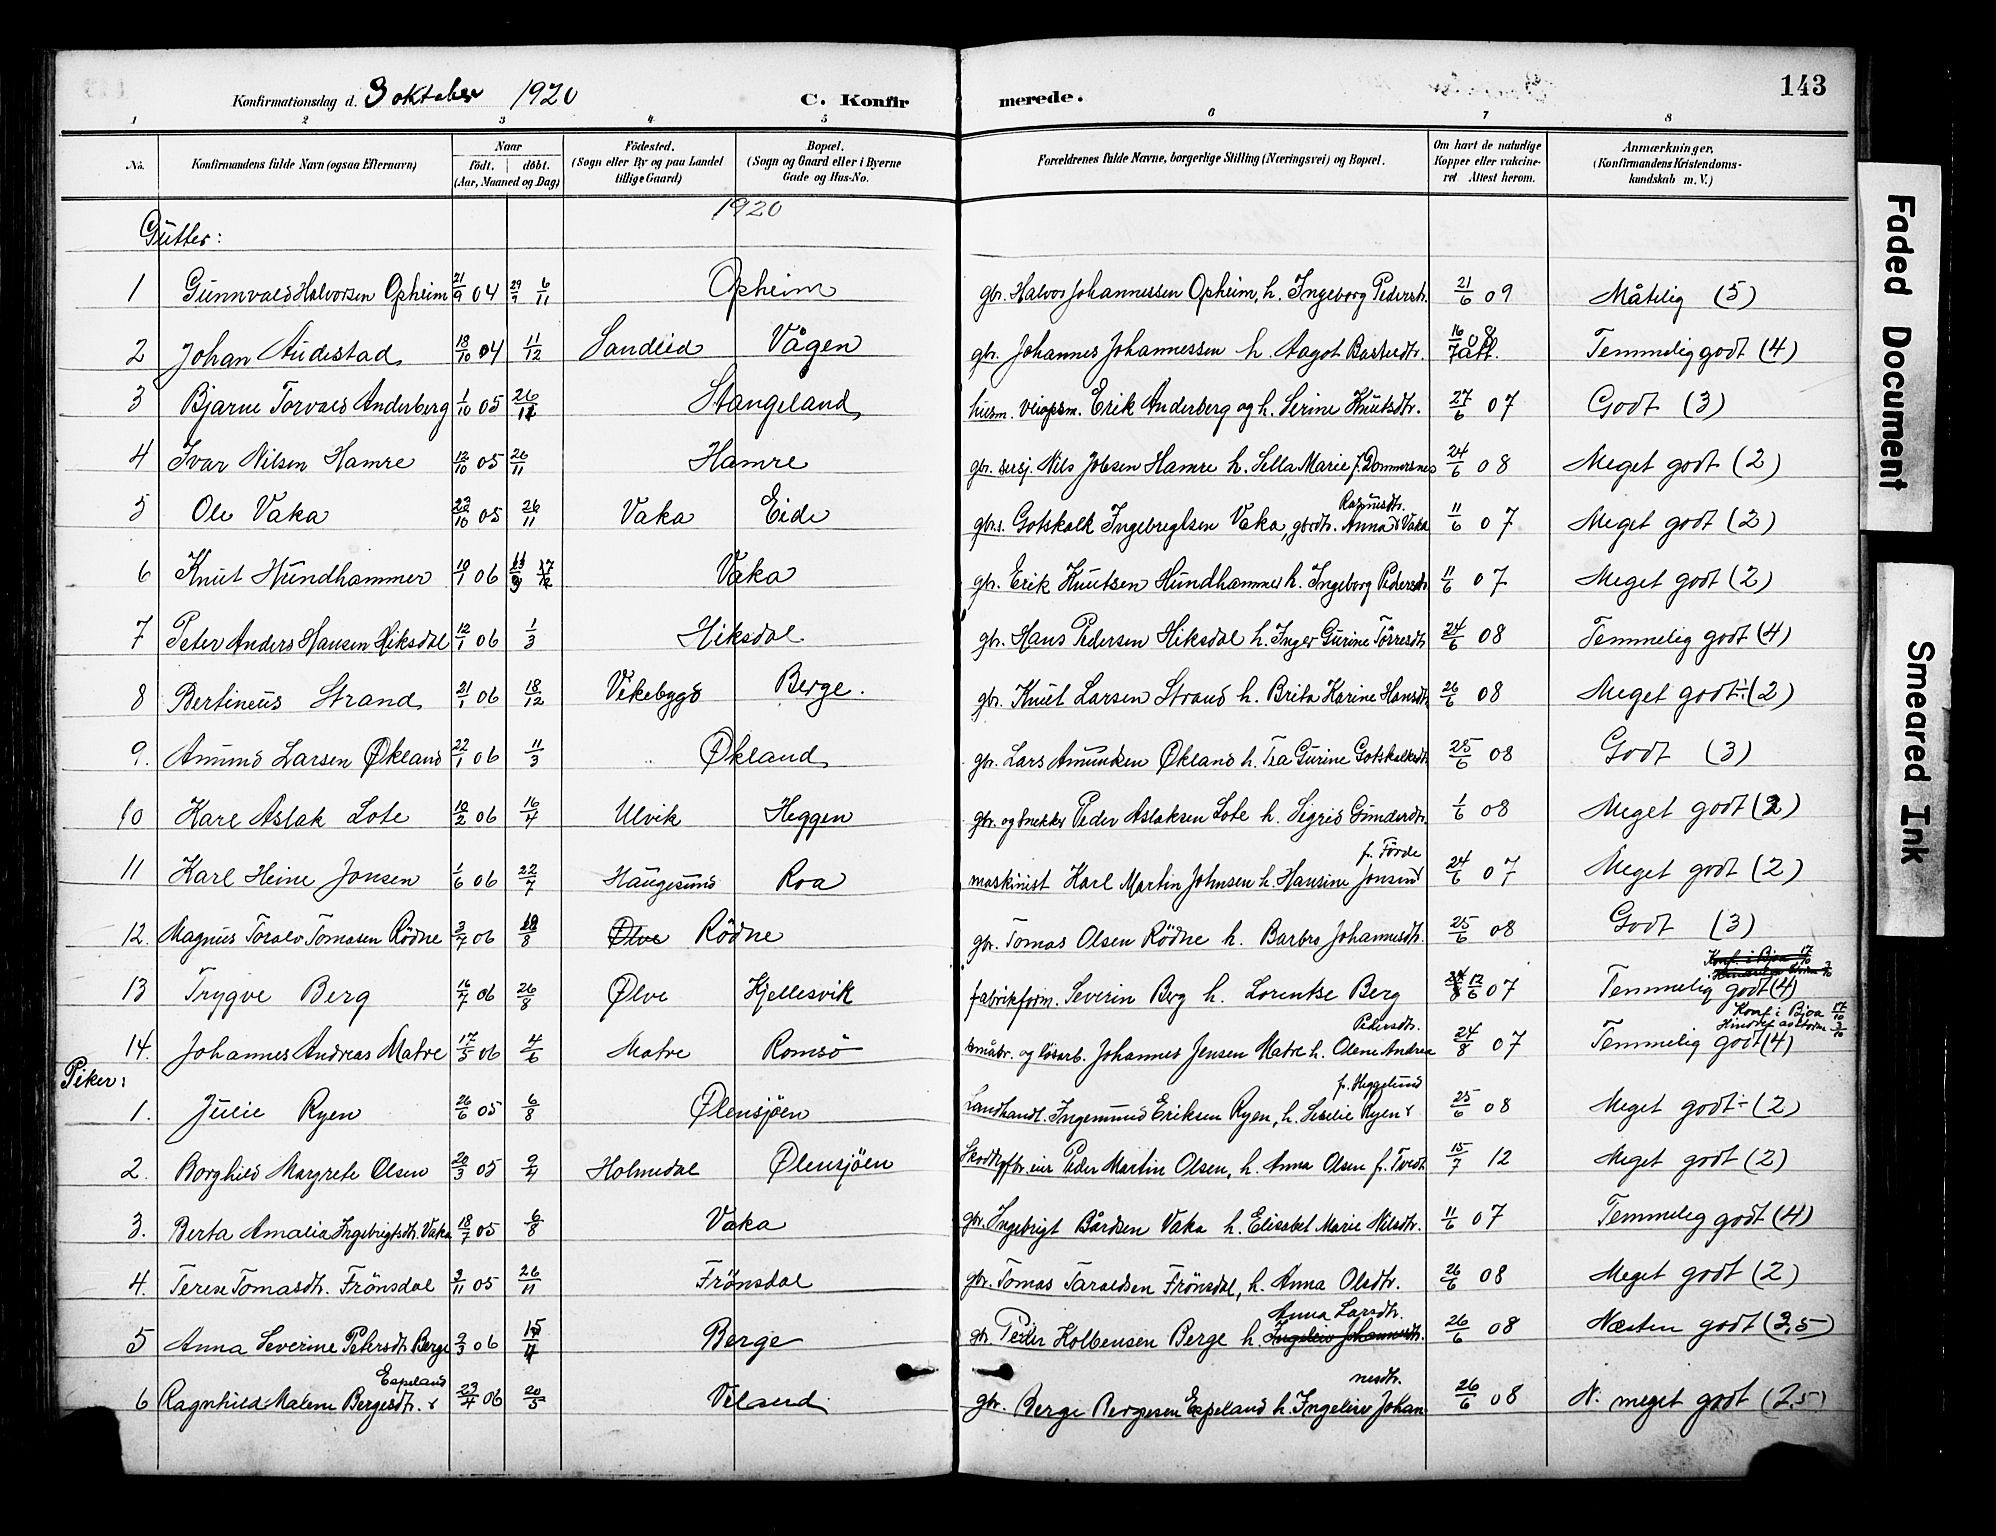 143
Konfirmationsdag d. 3 oktober 1920 C. Konfirmerede.
1 2 3 4 5 6 7 8
No. Konfirmandens fulde Navn (ogsaa Efternavn) Naar födt. döbt. (Aar, Maaned og Dag) Födested. (Sogn eller By og paa Landet tillige Gaard) Bopæl. (Sogn og Gaard eller i Byerne Gade og Hus-No. Forældrenes fulde Navne, borgerlige Stilling (Næringsvei) og Bopæl. Om havt de naturlige Kopper eller vakcineret Attest herom. Anmærkninger, (Konfirmandens Kristendomskundskab m. V.)
1920
Gutter:
1 Gunnvald Halvorsen Opheim 21/9 04 6/11 Opheim gbr. Halvor Johannessen Opheim, h. Ingeborg Pedersdtr. 21/6 09 Måtelig (5)
2 Johan Audestad 18/10 04 11/12 Sandeid Vågen gbr. Johannes Johannessen h. Aagot 16/7 08 att. Temmelig godt (4)
3 Bjarne Torvald Anderberg 1/10 05 26/12 Stangeland husm. Erik Anderberg og h. Serine Knutsdtr. 27/6 07 Godt (3)
4 Ivar Nilsen Hamre 12/10 05 26/11 Hamre gbr. Nils Jobsen Hamre h. Sella Marie f. Dommersnes 24/6 08 Meget godt (2)
5 Ole Vaka 23/10 05 26/11 Vaka Eide gbrs. Gotskalk Ingebregtsen Vaka, gbrdtr. Anna Rasmusdtr. Vaka 11/6 07 Meget godt (2)
6 Knut Hundhammer 10/1 06 Vaka gbr. Erik Knutsen Hundhammer h. Ingeborg Pedersdtr. 11/6 07 Meget godt (2)
7 Peter Anders Hansen Hiksdal 12/1 06 1/3 Hiksdal gbr. Hans Pedersen Hiksdal h. Inger Gurine Törresdtr. 24/6 08 Temmelig godt (4)
8 Bertineus Strand 21/1 06 18/12 Vikebygd Berge. gbr. Knut Larsen Strand h. Brita Karine Hansdtr. 26/6 08 Meget godt ÷ (2)
9. Amund Larsen Økland 22/1 06 11/3 " Økland gbr. Lars Amundsen Økland h. Tea Gurine Gotskalksdtr. 25/6 08 Godt (3)
10 Karl Aslak Lote 10/2 06 16/4 Ulvik Heggen gbr. og snekker Peder Aslaksen Lote h. Sigrid Gundersdtr. 1/6 08 Meget godt (2)
11 Karl Heine Jonsen 1/6 06 22/7 Haugesund Roa maskinist Karl Martin Johnsen h. Hansine Jonsen f. Förde 24/6 07 Meget godt (2)
12. Magnus Toralv Tomasen Rödne 3/7 06 Ølve Rödne gbr. Tomas Olsen Rödne h. Barbro Johannesdtr. 25/6 08 Godt (3)
13 Trygve Berg 16/7 06 26/8 Ølve Kjellesvik fabrikform. Severin Berg h. Lorentse Berg 12/6 07 Temmelig godt (4) Konf. i Bjoa 17/10
14. Johannes Andreas Matre 17/5 06 4/6 Matre Romsö småbr. og lösarb. Johannes Jensen Matre h. Olene Andrea Pedersdtr. 24/8 07 Temmelig godt (4) Konf. i Bjoa 17/10 Hindret av storm 3/10
Piker:
1. Julie Ryen 26/6 05 6/8 Ølensjöen Landhandl. Ingemund Eriksen Ryen, h. Seselie Ryen f. Heggelund 25/6 08 Meget godt ÷ (2)
2. Borghild Margrete Olsen 20/3 05 9/4 Holmedal Ølensjöen Peder Martin Olsen, h. Anna Olsen f. Tvedt 15/7 12 Meget godt (2)
3. Berta Amalia Ingebrigtsdtr. Vaka 18/7 05 6/8 Vaka gbr. Ingebrigt Bårdsen Vaka h. Elisabet Marie Nilsdtr. 11/6 07 Temmelig godt (4)
4. Terese Tomasdtr. Frönsdal 3/11 05 26/11 Frönsdal gbr. Tomas Taraldsen Frönsdal, h. Anna Olsdtr. 26/6 08 Meget godt (2)
5 Anna Severine Petersdtr Berge 9/3 06 15/4 Berge gbr. Peder Kolbensen Berge h. Ingeleiv Johannesdtr. Anna Larsdtr. 26/6 08 Næsten godt (3,5)
6 Ragnhild Malene Bergesdtr. Espeland 23/4 06 20/5 Viland gbr. Berge Bergesen Espeland h. Ingeleiv Johannesdtr. 26/6 08 N. meget godt (2,5)
Faded Document
Smeared Ink